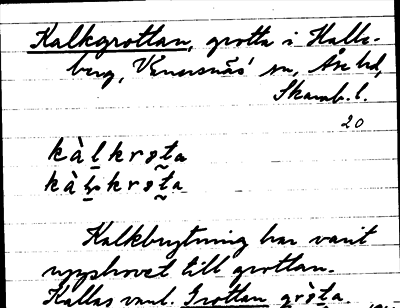 Kalkgrottan, grotta i Halle-
berg, Vänersnäs' sn, Åse hd,
Skarab. l.
20
kàḷkrota
kàḷkrota
Kalkbrytning har varit
upphovet till grottan.
Kallas vanl. Grottan gròta.